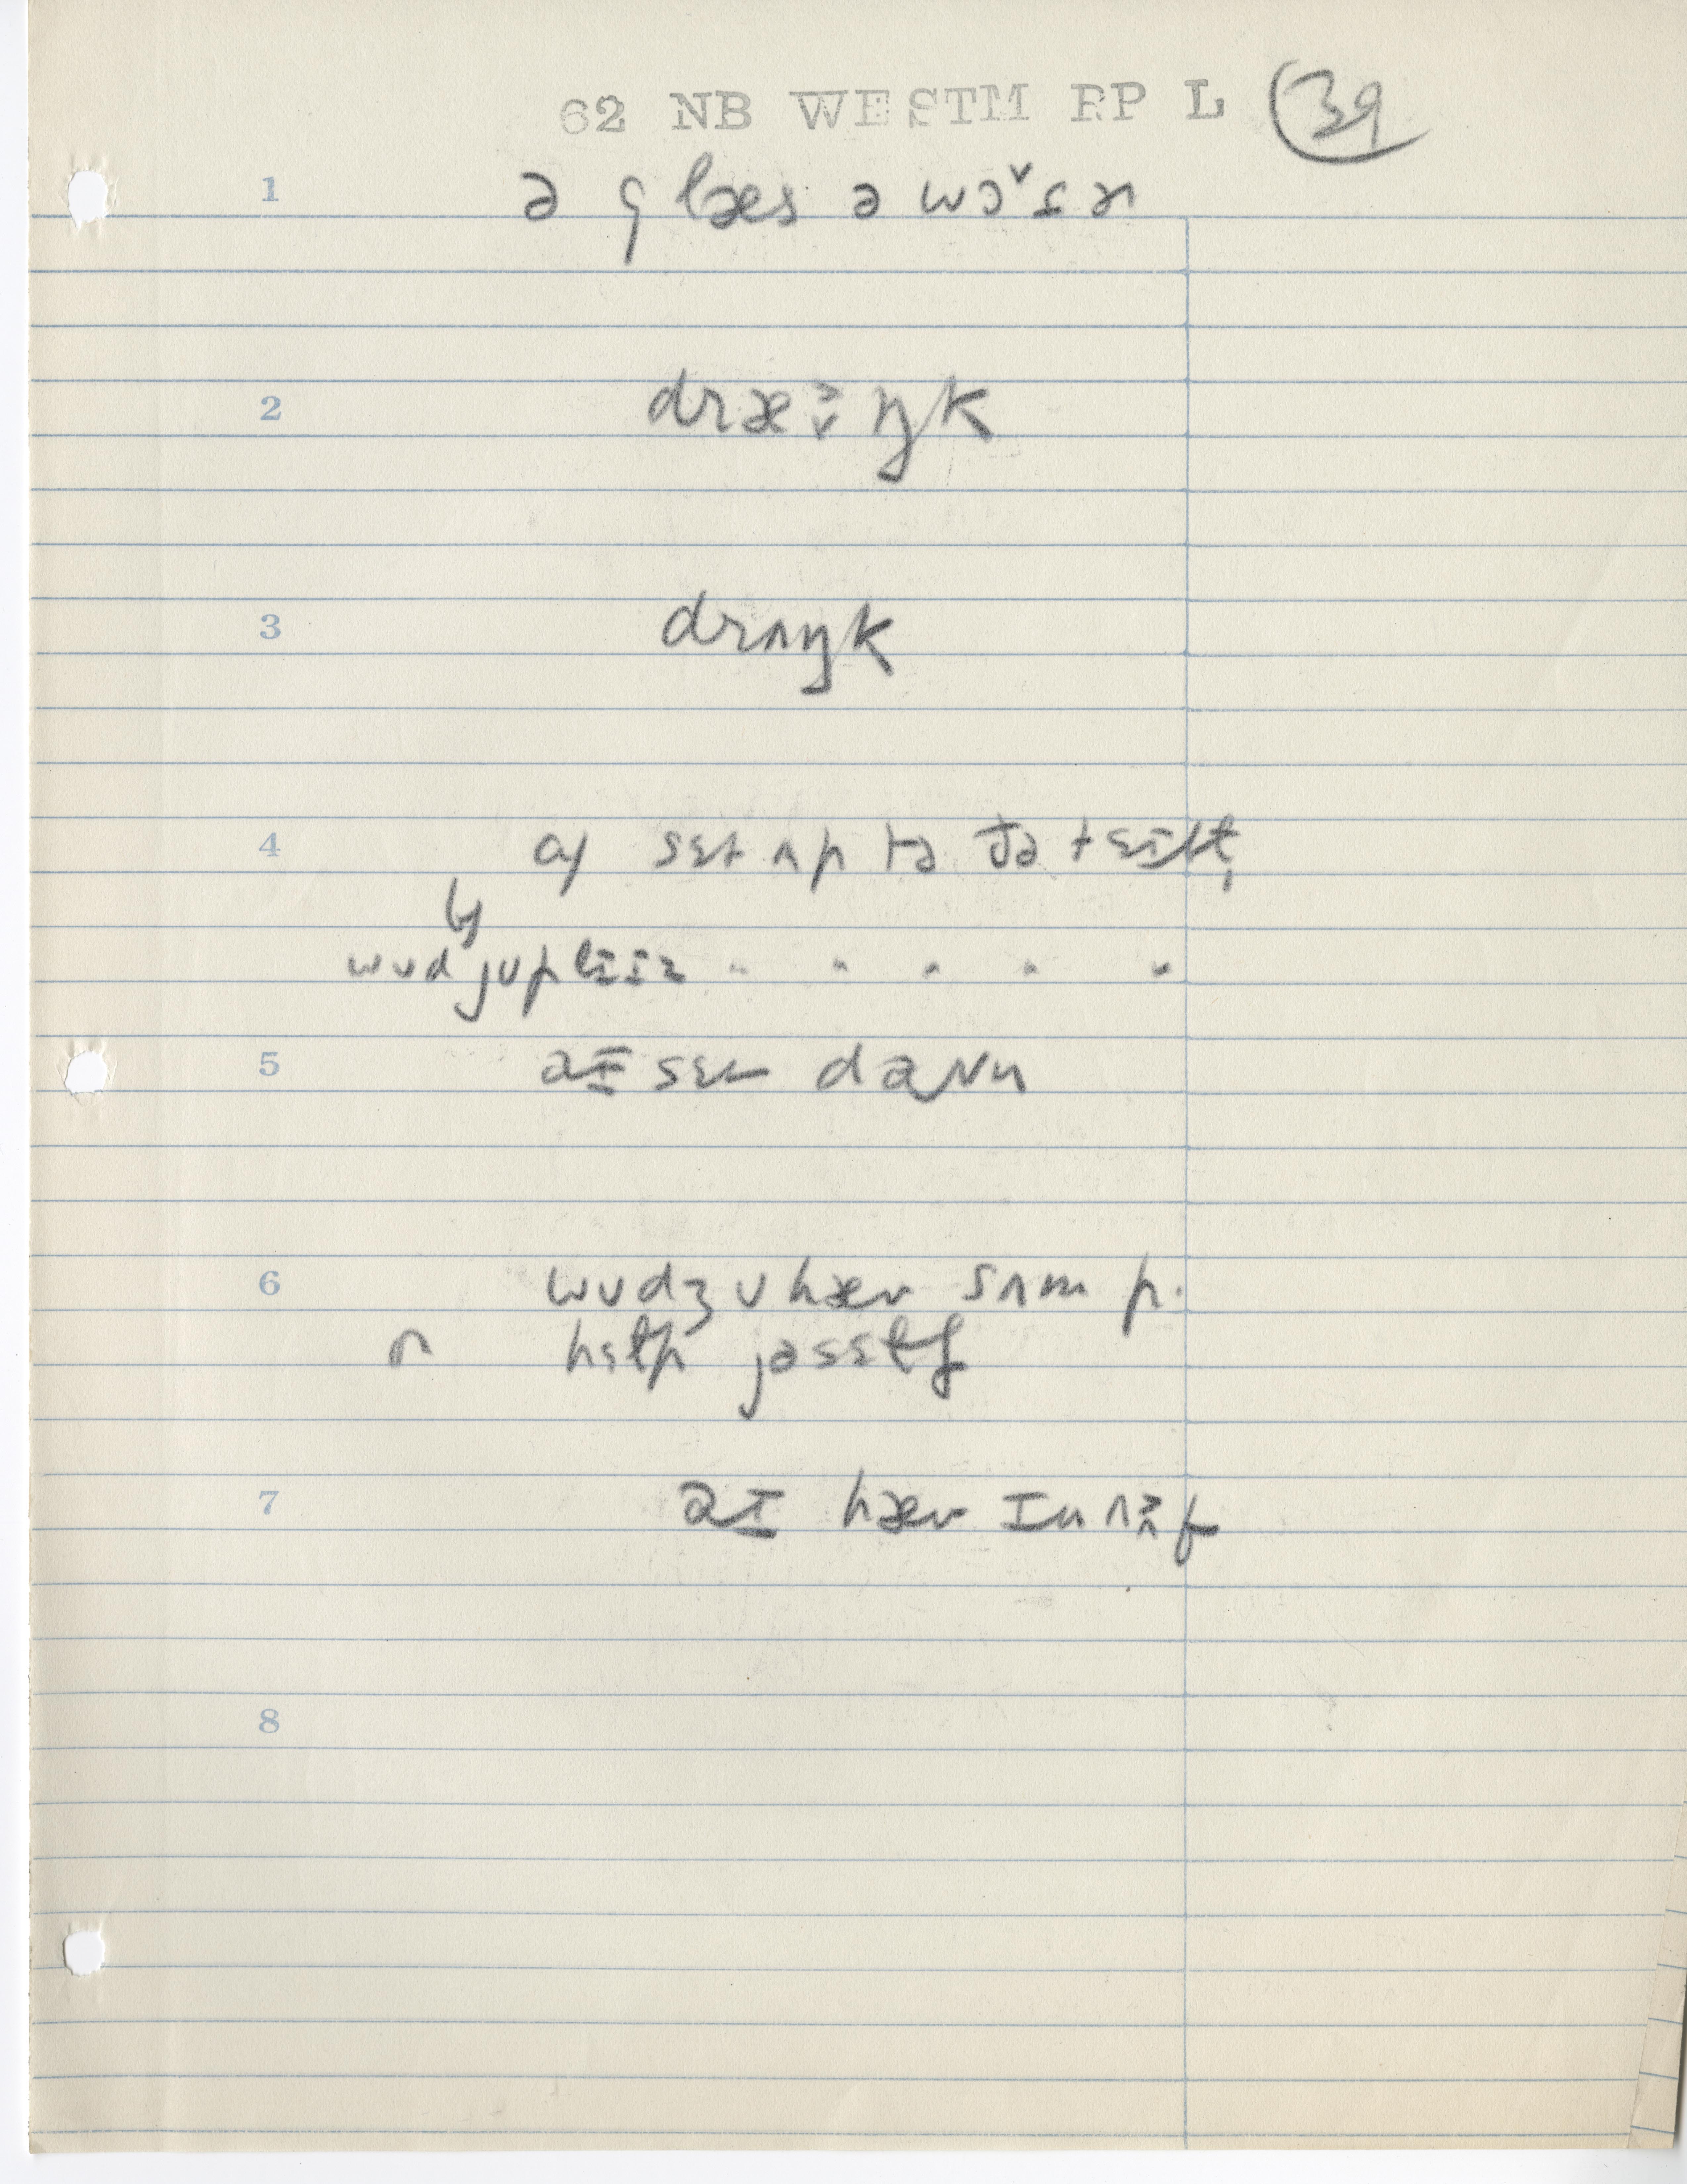 62 NB WESTM RP L 39
1 ə glæs ə wɔ˅ɾɚ
2 dræ˃˅ŋk
3 drʌŋk
4 a) sɛt ʌp tə ðə tɛɪbɫ,
b)
wʊd jʊ pliiz " " " " "
5 aɪ sɛt daʊn
6 wʊdʒʊ hæv sʌm p.
or hɛɫp jəsɛɫf
7 aɪ hæv ɪnʌ˃˄f
8